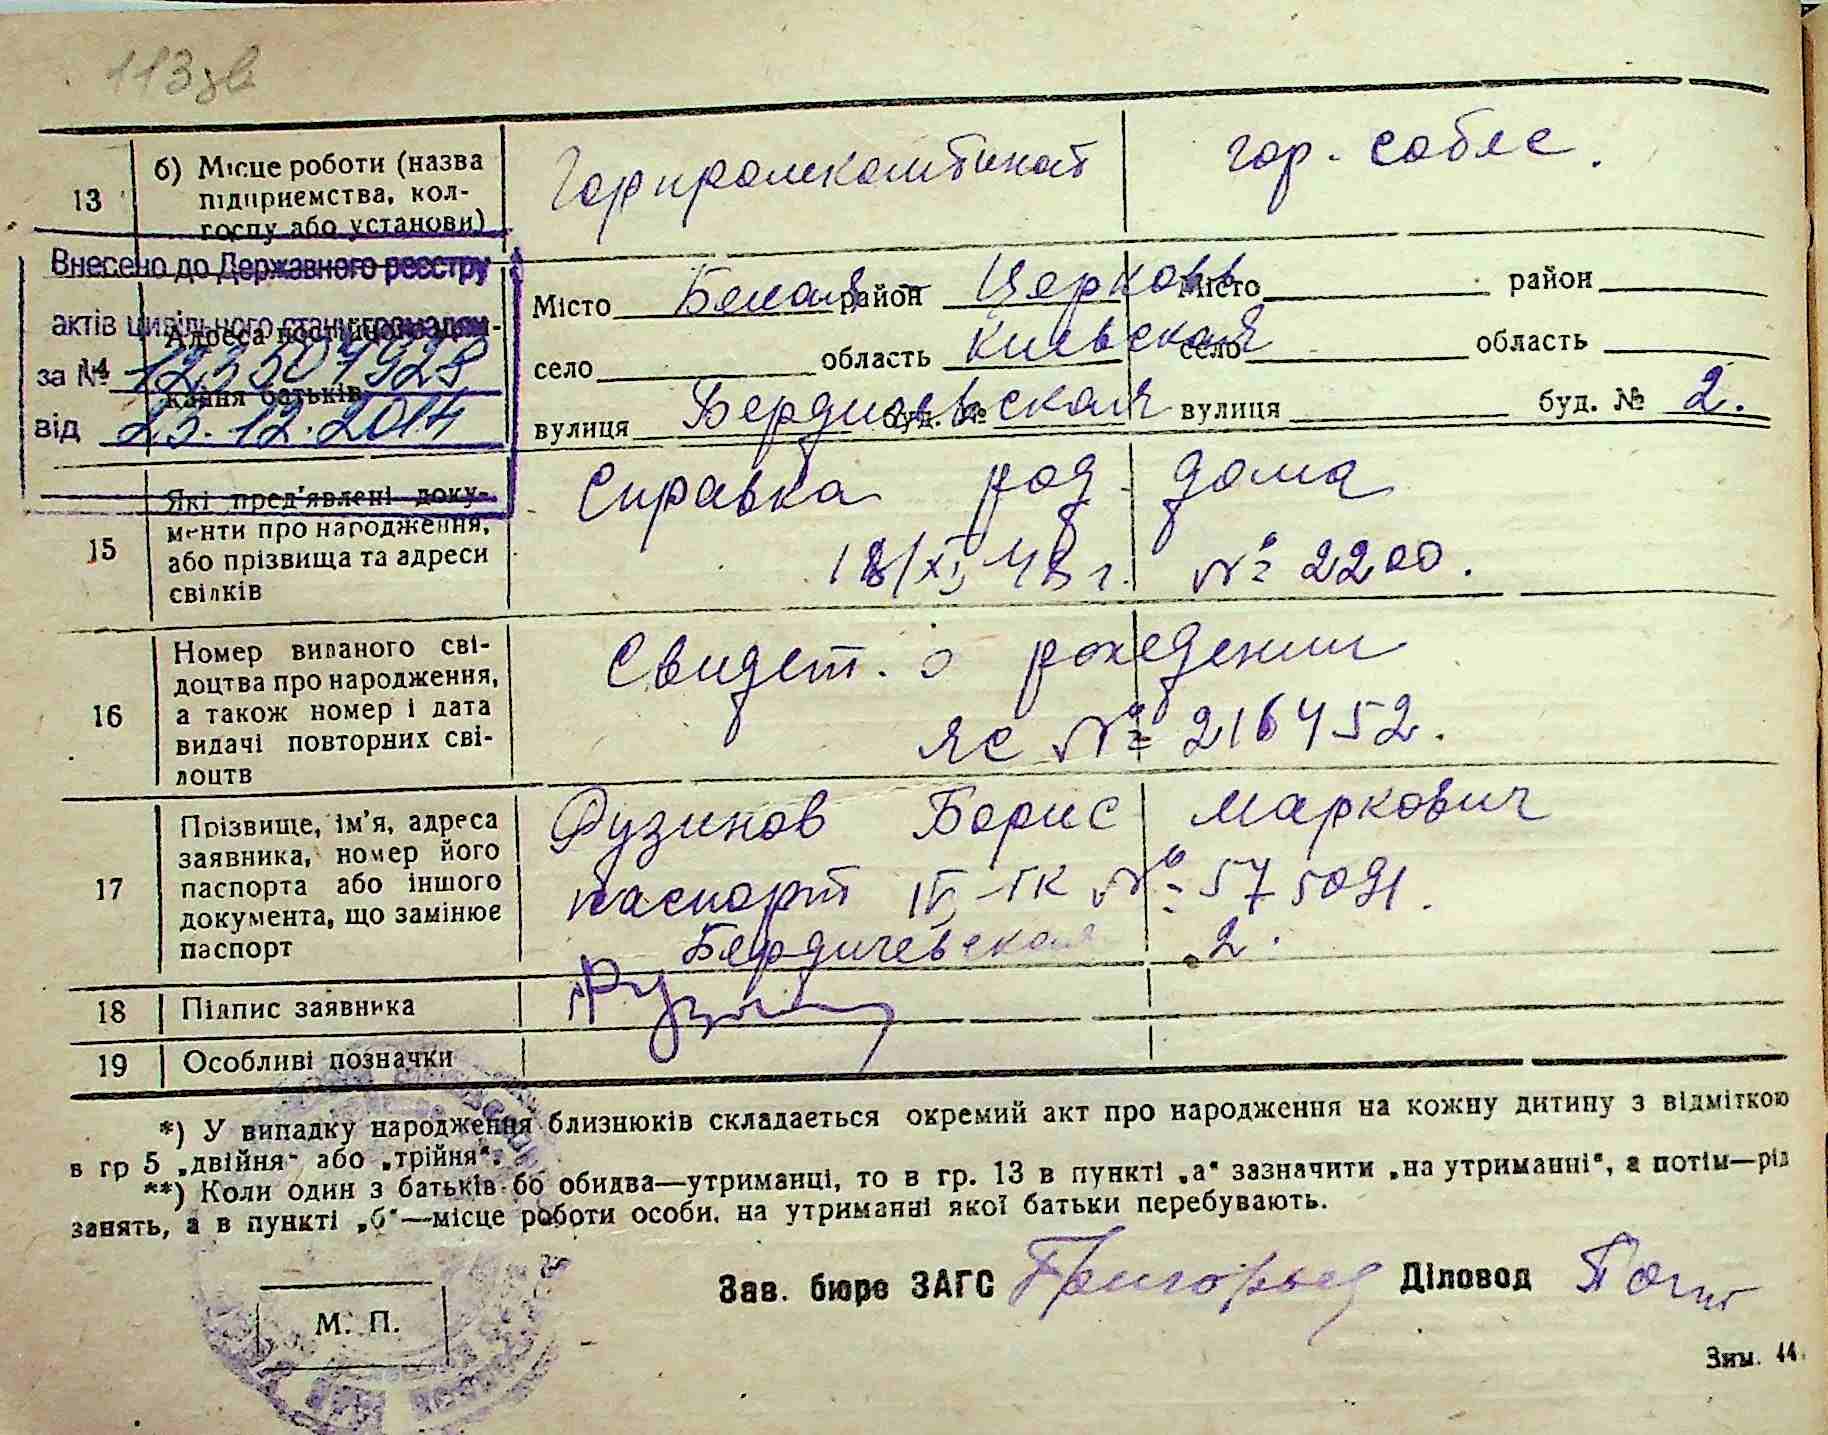 113 зв
13
б) Місце роботи (назва
підприємства, кол-
госпу або установи)
Горпромкомбинат
гор. собес.
Внесено до Державного реєстру
актів цивільного стану громадян
за №
від 23.12.2014
Адреса постійного
кання батьків
Місто Белая район Церковь Місто район
село область Киевская село область
вулиця Бердичевская буд. № вулиця буд. № 2.
15
Які пред'явлені доку-
менти про народження,
або прізвища та адреси
свідків
Справка род. дома
18/XI 48 г. № 2200.
16
Номер виданого сві-
доцтва про народження,
а також номер і дата
видачі повторних сві-
доцтв
Свидет. о рождении
ЯС № 216452.
17
Прізвище, ім'я, адреса
заявника, номер його
паспорта або іншого
документа, що замінює
паспорт
Фузинов Борис Маркович
паспорт IV-ГК № 575091.
Бердичевская 2.
18 Підпис заявника
19 Особливі позначки
*) У випадку народження близнюків складається окремий акт про народження на кожну дитину з відміткою
в гр 5 „двійня“ або „трійня“.
**) Коли один з батьків бо обидва—утриманці, то в гр. 13 в пункті „а“ зазначити „на утриманні“, а потім—рід
занять, а в пункті „б“—місце роботи особи, на утриманні якої батьки перебувають.
Зав. бюре ЗАГС Григорьев Діловод
М. П.
Зим. 44